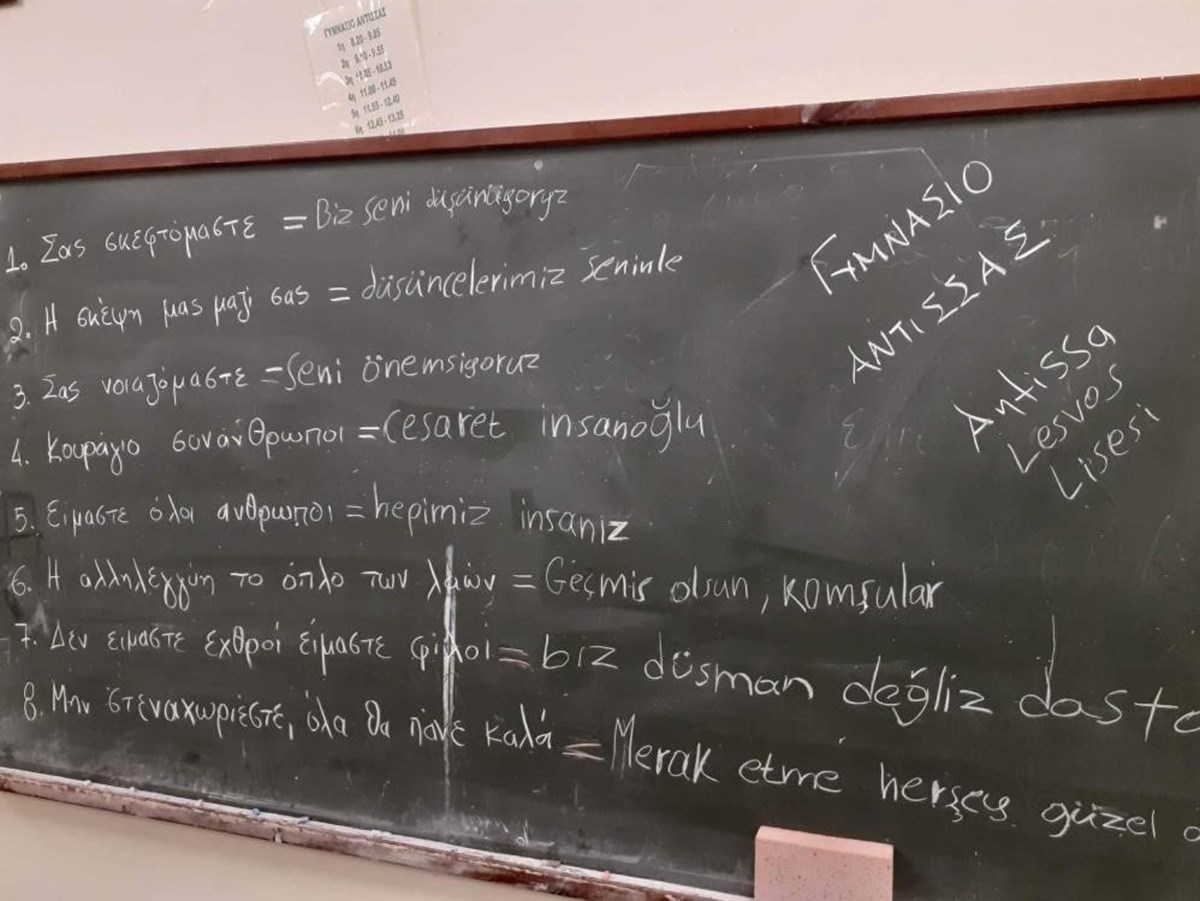 ΓΥΜΝΑΣΙΟ ΑΝΤΙΣΣΑΣ
1η 8.20 - 9.05
2η 9.10 - 9.55
4η 11.00 - 11.45
5η 11.55 - 12.40
6η 12.45 - 13.25
1. Σας σκεφτόμαστε = Biz seni düşünüyoryz
2. Η σκέψη μας μαζί σας = düşüncelerimiz seninle
3. Σας νοιαζόμαστε = seni önemsiyoruz
4. Κουράγιο συνάνθρωποι = cesaret insanoğlu
5. Ειμαστε όλοι ανθρωποι = hepimiz insanız
6. Η αλληλεγγύη το όπλο των λαών = Geçmis olsun, komşular
7. Δεν ειμαστε εχθροί είμαστε φίλοι = biz düsman değliz dostc
8. Μην στεναχωριέστε, όλα θα πάνε καλά = Merak etme herşey güzel
ΓΥΜΝΑΣΙΟ
ΑΝΤΙΣΣΑΣ
Antissa
Lesvos
Lisesi